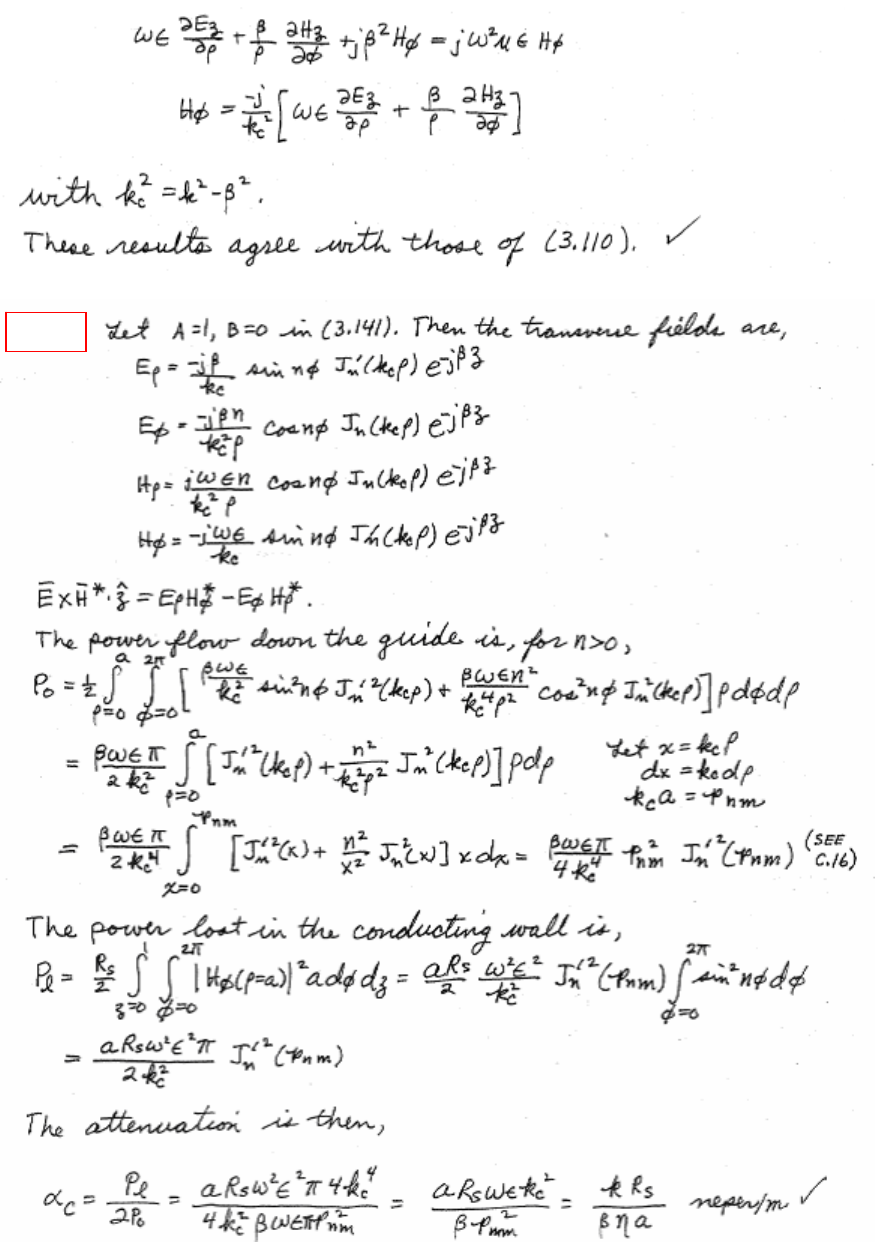 ωϵ ∂E_z/∂ρ + β/ρ ∂H_z/∂ϕ + jβ² H_ϕ = jω²μϵ H_ϕ
H_ϕ = -j/k_c² [ωϵ ∂E_z/∂ρ + β/ρ ∂H_z/∂ϕ]
with k_c² = k² - β².
These results agree with those of (3.110). ✓
Let A=1, B=0 in (3.141). Then the transverse fields are,
E_ρ = -jβ/k_c sin nϕ J_n'(k_cρ) e^-jβz
E_ϕ = -jβn/k_c²ρ cos nϕ J_n(k_cρ) e^-jβz
H_ρ = jωϵn/k_c²ρ cos nϕ J_n(k_cρ) e^-jβz
H_ϕ = -jωϵ/k_c sin nϕ J_n'(k_cρ) e^-jβz
Ē×H̄*·ẑ = E_ρH_ϕ* - E_ϕH_ρ*.
The power flow down the guide is, for n>0,
P_o = ½ ∫_{ρ=0}^{a} ∫_{ϕ=0}^{2π} [βωϵ/k_c² sin²nϕ J_n'²(k_cρ) + βωϵn²/k_c⁴ρ² cos²nϕ J_n²(k_cρ)] ρdϕdρ
= βωϵπ/2k_c² ∫_{ρ=0}^{a} [J_n'²(k_cρ) + n²/k_c²ρ² J_n²(k_cρ)] ρdρ Let x = k_cρ
dx = k_c dρ
k_c a = p_nm
= βωϵπ/2k_c⁴ ∫_{x=0}^{p_nm} [J_n'²(x) + n²/x² J_n²(x)] x dx = βωϵπ/4k_c⁴ p_nm² J_n'²(p_nm) (SEE C.16)
The power lost in the conducting wall is,
P_ℓ = R_s/2 ∫_{z=0}^{1} ∫_{ϕ=0}^{2π} |H_ϕ(ρ=a)|² a dϕ dz = aR_s/2 ω²ϵ²/k_c² J_n'²(p_nm) ∫_{ϕ=0}^{2π} sin²nϕ dϕ
= aR_sω²ϵ²π/2k_c² J_n'²(p_nm)
The attenuation is then,
α_c = P_ℓ/2P_o = aR_sω²ϵ²π4k_c⁴/4k_c²βωϵπp_nm² = aR_sωϵk_c²/βp_nm² = kR_s/βηa neper/m ✓